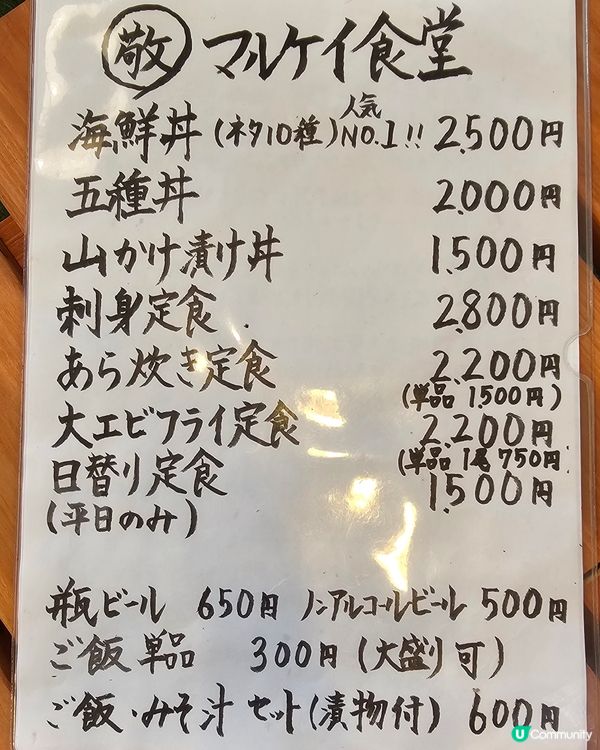 敬 マルケイ食堂
人気
海鮮丼(ネタ10種)NO.1!! 2,500円
五種丼 2,000円
山かけ漬け丼 1,500円
刺身定食 2,800円
あら炊き定食 2,200円
(単品 1,500円)
大エビフライ定食 2,200円
(単品 1尾 750円
日替り定食 1,500円
(平日のみ)
瓶ビール 650円 ノンアルコールビール 500円
ご飯 単品 300円(大盛り可)
ご飯・みそ汁 セット(漬物付) 600円
U Community